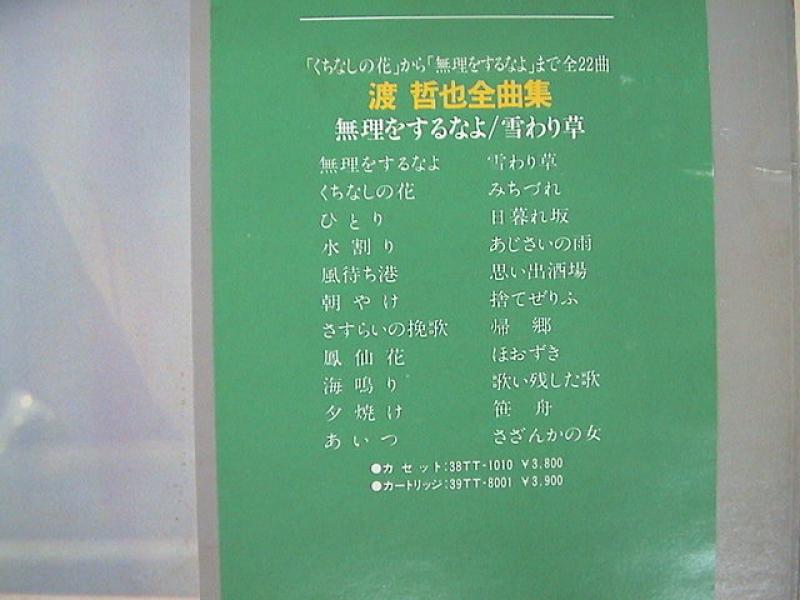 「くちなしの花」から「無理をするなよ」まで全22曲
渡 哲也全曲集
無理をするなよ/雪わり草
無理をするなよ 雪わり草
くちなしの花 みちづれ
ひとり 日暮れ坂
水割り あじさいの雨
風待ち港 思い出酒場
朝やけ 捨てぜりふ
さすらいの挽歌 帰郷
鳳仙花 ほおずき
海鳴り 歌い残した歌
夕焼け 笹舟
あいつ さざんかの女
●カセット:38TT-1010 ¥3,800
●カートリッジ:39TT-8001 ¥3,900